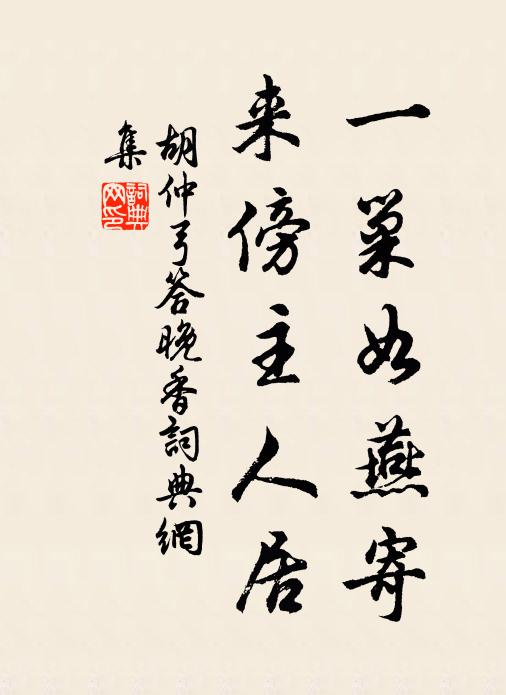 一巢如燕寄
来傍主人居
胡仲弓答晚香詞典網
集
詞典
网印